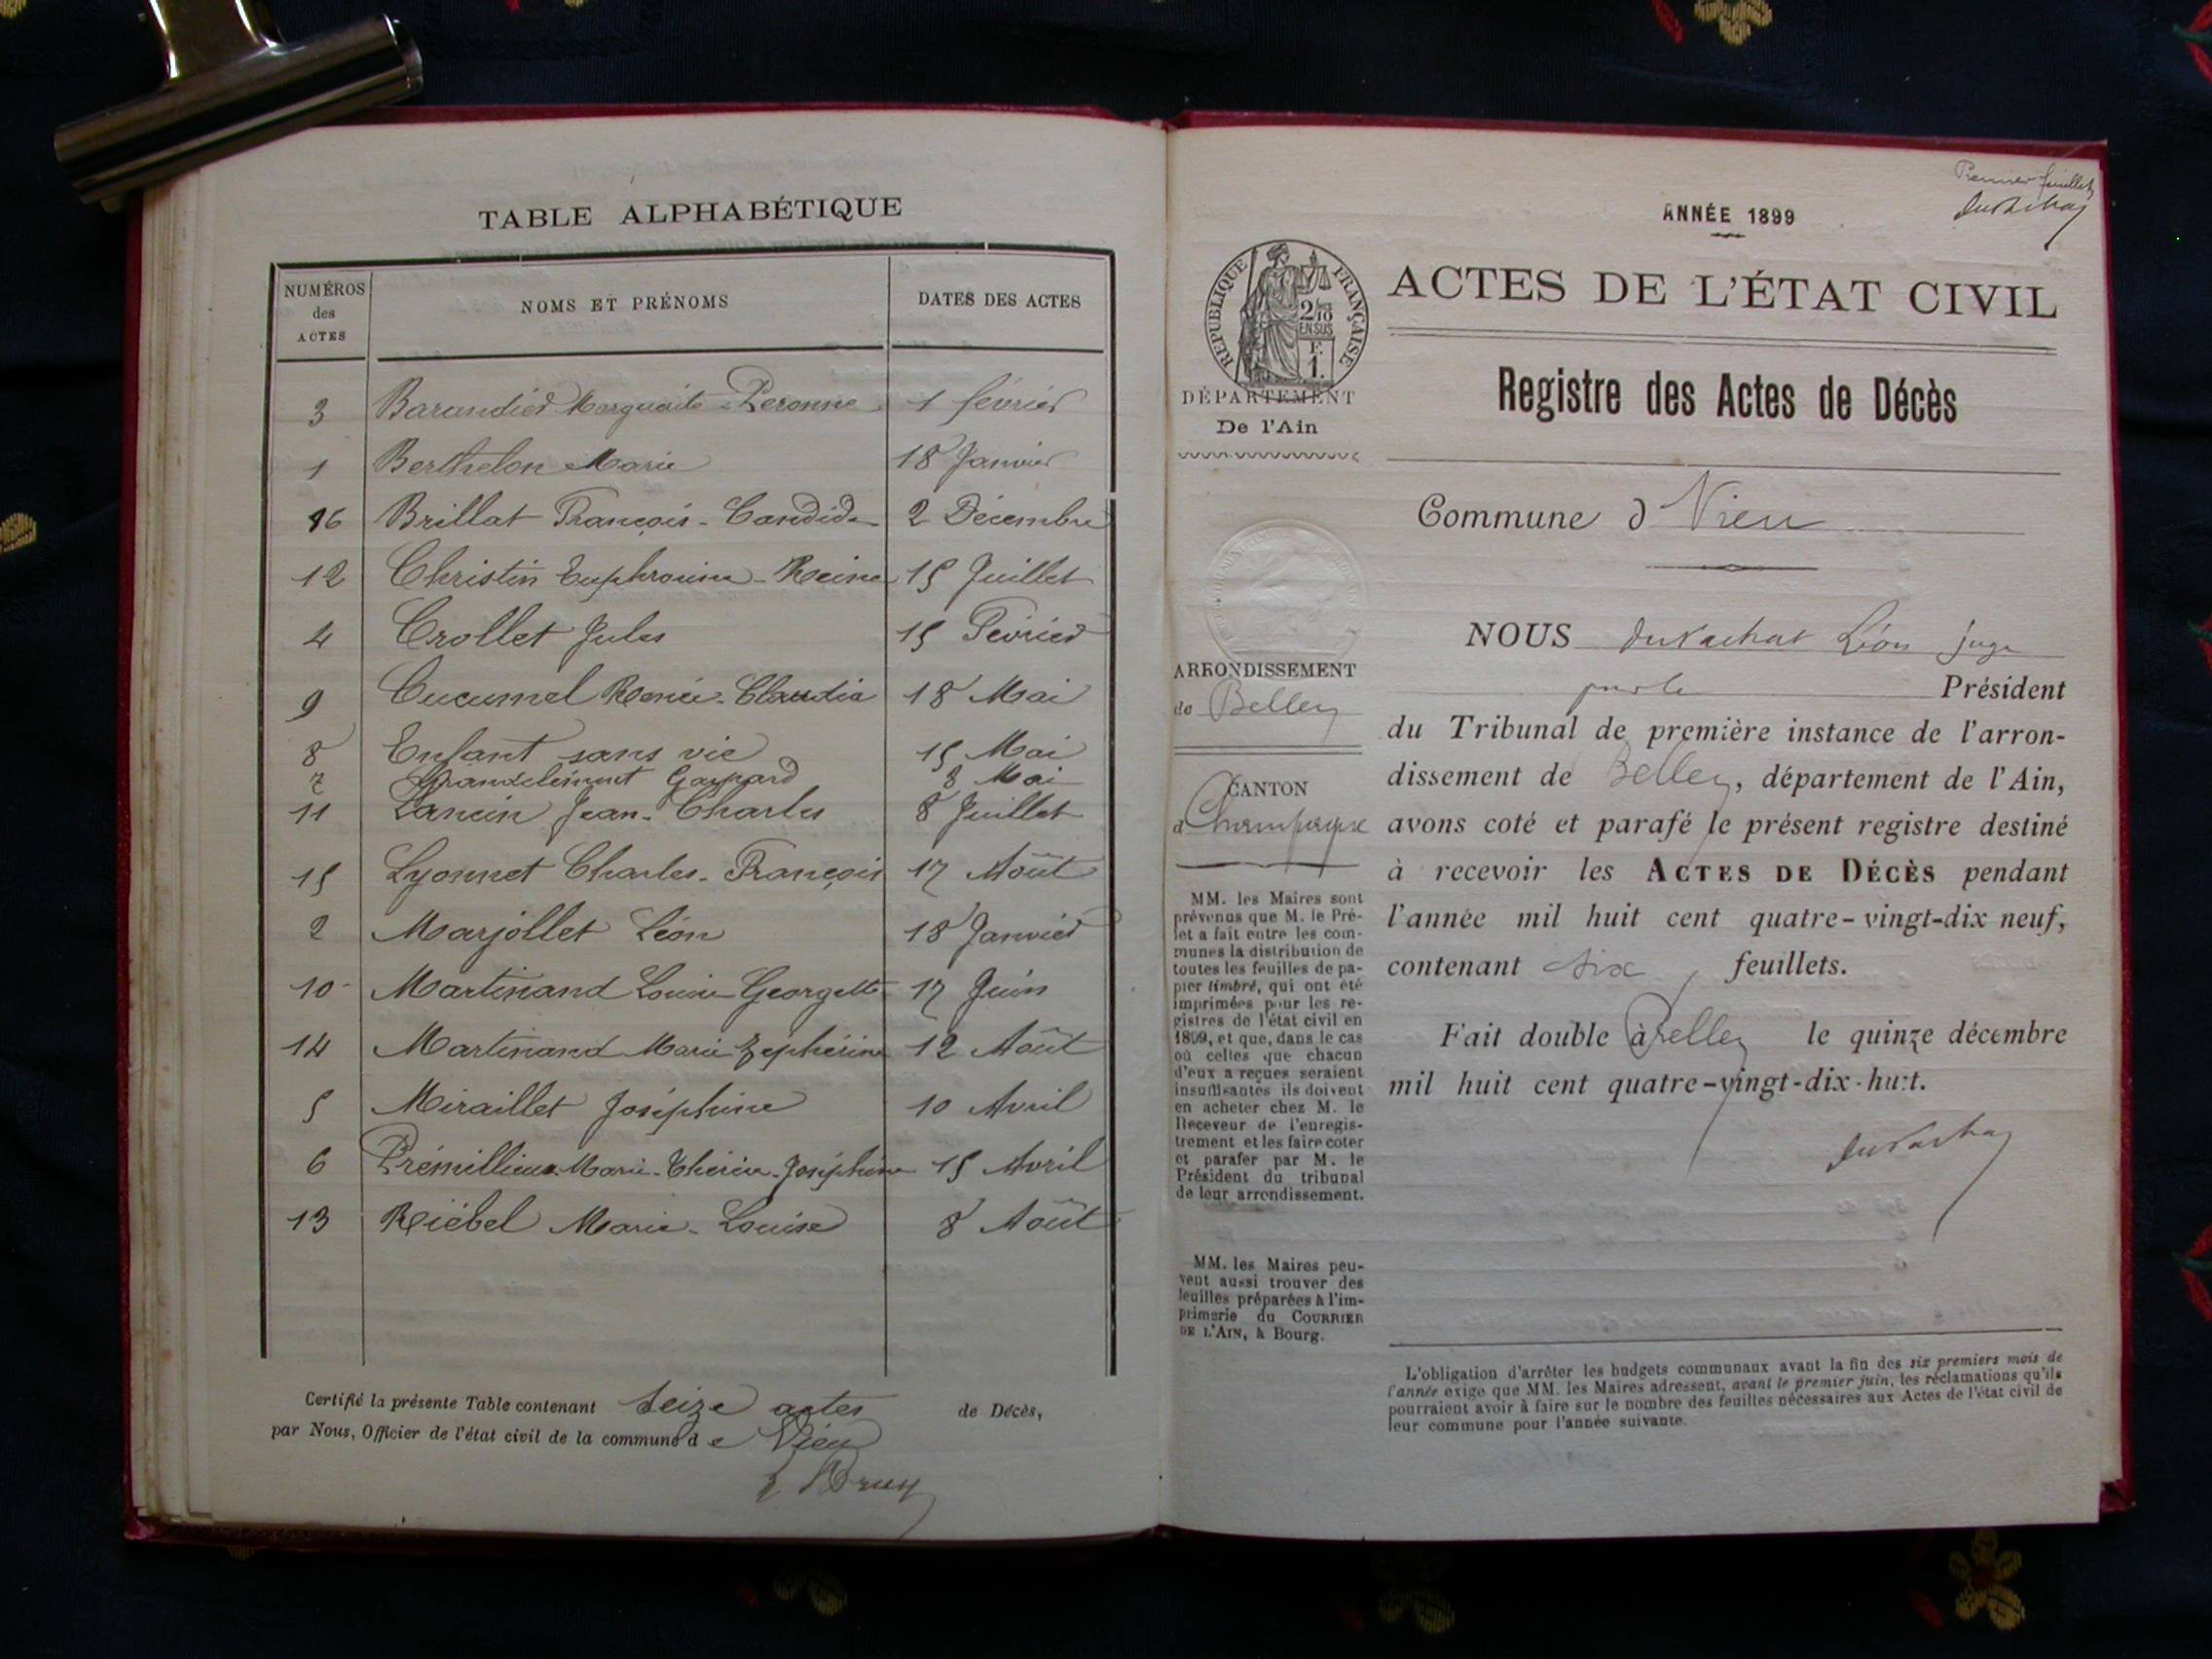 TABLE ALPHABÉTIQUE
NUMÉROS
des
ACTES
NOMS ET PRÉNOMS
DATES DES ACTES
3 Barandier Marguerite Peronne 1 février
1 Berthelon Marie 18 Janvier
16 Brillat François-Candide 2 Décembre
12 Christin Euphrosine-Reine 15 Juillet
4 Crollet Jules 15 Février
9 Cucumel Renée-Claudia 18 Mai
8 Enfant sans vie 15 Mai
7 Grandclément Gaspard 8 Mai
11 Lancin Jean-Charles 8 Juillet
15 Lyonnet Charles-François 17 Août
2 Marjollet Léon 18 Janvier
10 Martinand Louise-Georgette 17 Juin
14 Martinand Marie Zéphérine 12 Août
5 Miraillet Joséphine 10 Avril
6 Prémillieux Marie-Thérèse-Joséphine 15 Avril
13 Riébel Marie-Louise 8 Août
Certifié la présente Table contenant seize actes de Décès,
par Nous, Officier de l'état civil de la commune de Vieu
Premier feuillet
ANNÉE 1899
RÉPUBLIQUE FRANÇAISE
2/10
EN SUS
F.
1.
DÉPARTEMENT
De l'Ain
ACTES DE L'ÉTAT CIVIL
Registre des Actes de Décès
Commune d Vieu
ARRONDISSEMENT
de Belley
CANTON
d Champagne
MM. les Maires sont
prévenus que M. le Pré-
fet a fait entre les com-
munes la distribution de
toutes les feuilles de pa-
pier timbré, qui ont été
imprimées pour les re-
gistres de l'état civil en
1899, et que, dans le cas
où celles que chacun
d'eux a reçues seraient
insuffisantes ils doivent
en acheter chez M. le
Receveur de l'enregis-
trement et les faire coter
et parafer par M. le
Président du tribunal
de leur arrondissement.
MM. les Maires peu-
vent aussi trouver des
feuilles préparées à l'im-
primerie du COURRIER
DE L'AIN, à Bourg.
NOUS Léon juge
pour le Président
du Tribunal de première instance de l'arron-
dissement de Belley, département de l'Ain,
avons coté et parafé le présent registre destiné
à recevoir les ACTES DE DÉCÈS pendant
l'année mil huit cent quatre-vingt-dix neuf,
contenant six feuillets.
Fait double à Belley le quinze décembre
mil huit cent quatre-vingt-dix-huit.
L'obligation d'arrêter les budgets communaux avant la fin des six premiers mois de
l'année exige que MM. les Maires adressent, avant le premier juin, les réclamations qu'ils
pourraient avoir à faire sur le nombre des feuilles nécessaires aux Actes de l'état civil de
leur commune pour l'année suivante.